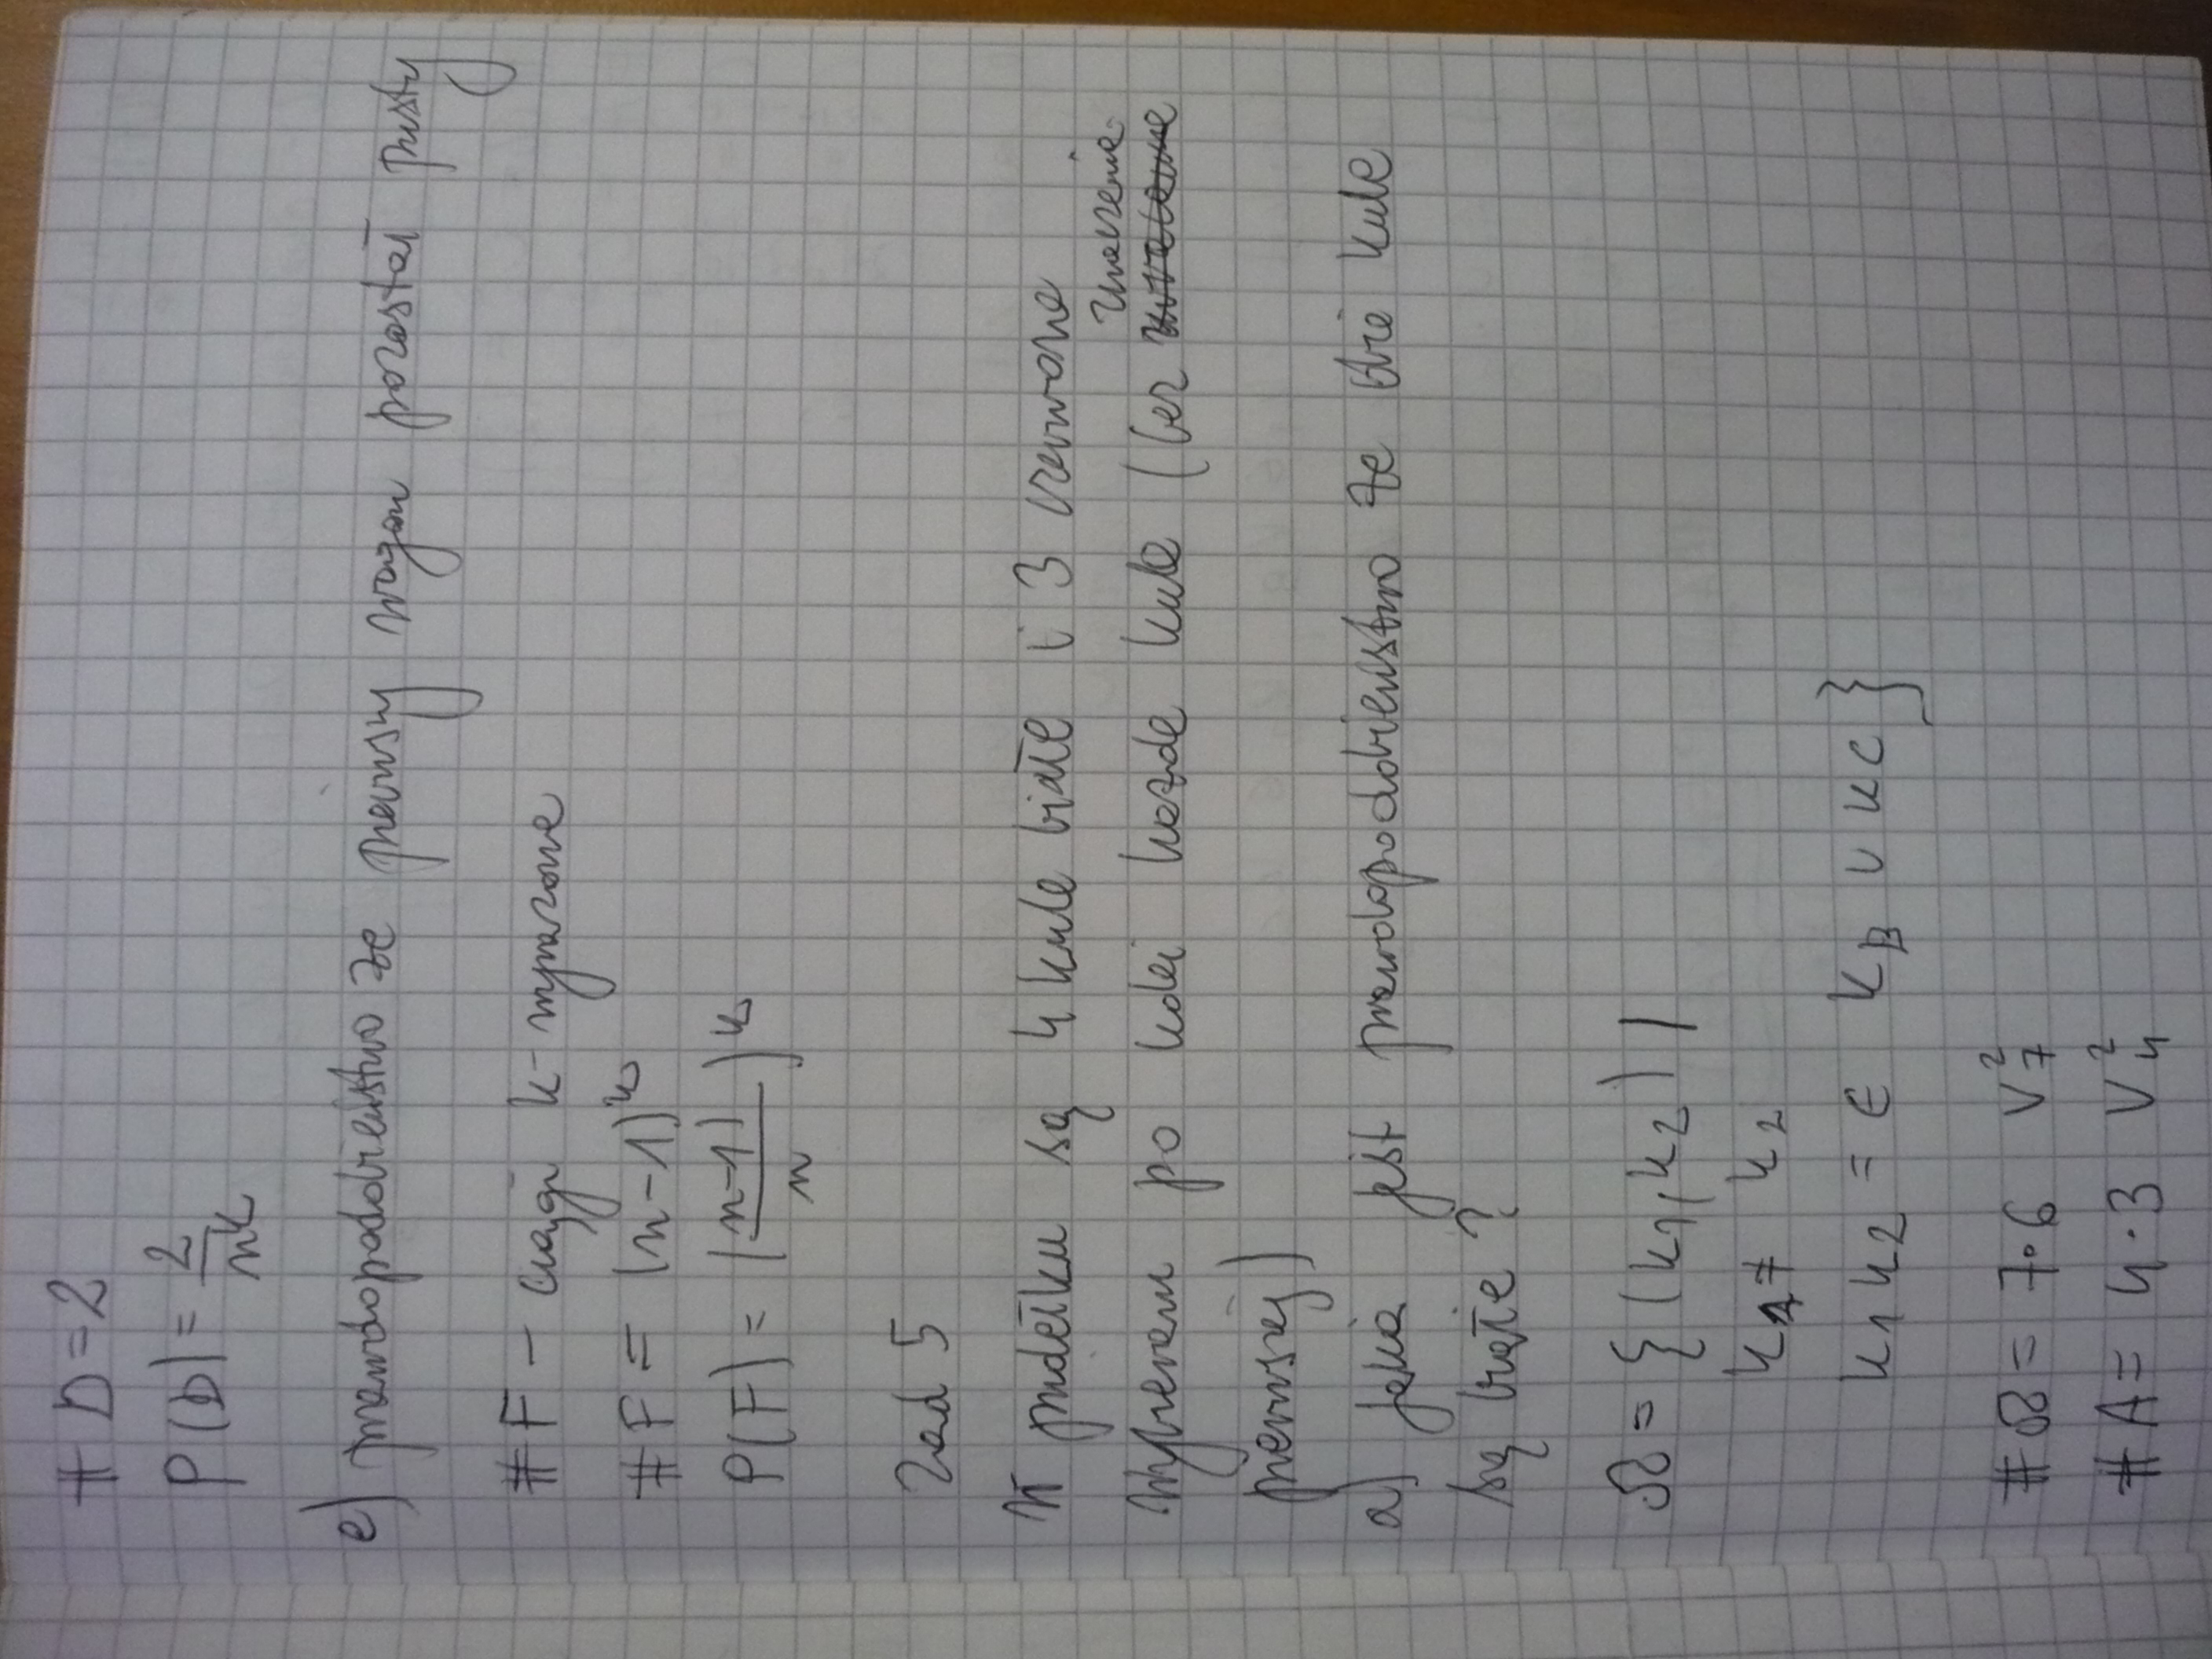 # D = 2
P(D) = 2/n^k
e) prawdopodobieństwo że pierwszy wagon pozostał pusty
# F - ciągi k-wyrazowe
# F = (n-1)^k
P(F) = (n-1/n)^k
Zad 5
W pudełku są 4 kule białe i 3 czerwone
wybieram po kolei każde kule (bez zwracania
pierwszej)
a) jakia jest prawdopodobieństwo że obie kule
są białe?
Ω = {(k1, k2) |
k1 ≠ k2
k1 k2 = ∈ KB ∪ KC}
# Ω = 7·6 V_7^2
# A = 4·3 V_4^2